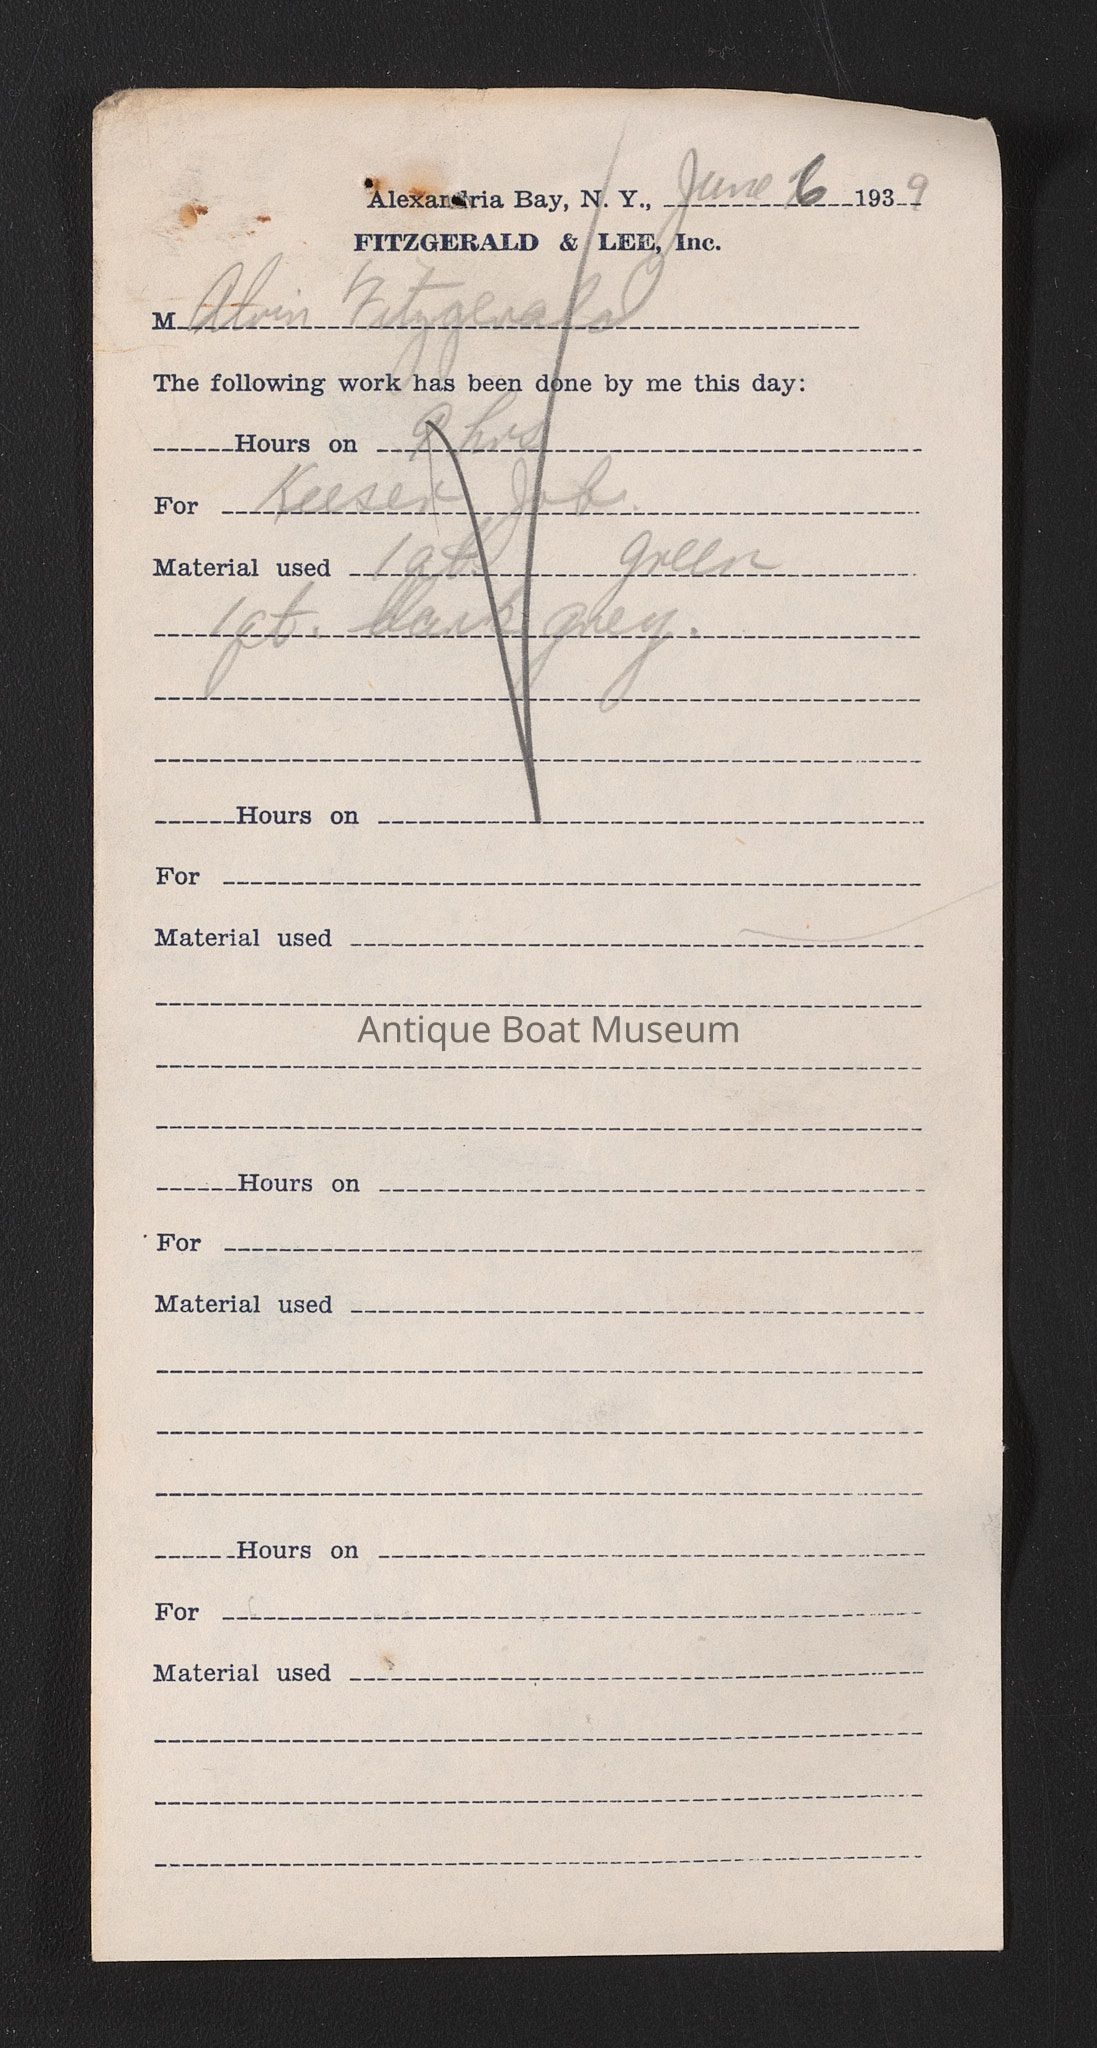 Alexandria Bay, N. Y., June 6 1939
FITZGERALD & LEE, Inc.
M Alvin Fitzgerald
The following work has been done by me this day:
Hours on 9 hrs
For Keeser Job.
Material used 1 qt. green
1 pt. dark grey.
Hours on
For
Material used
Antique Boat Museum
Hours on
For
Material used
Hours on
For
Material used